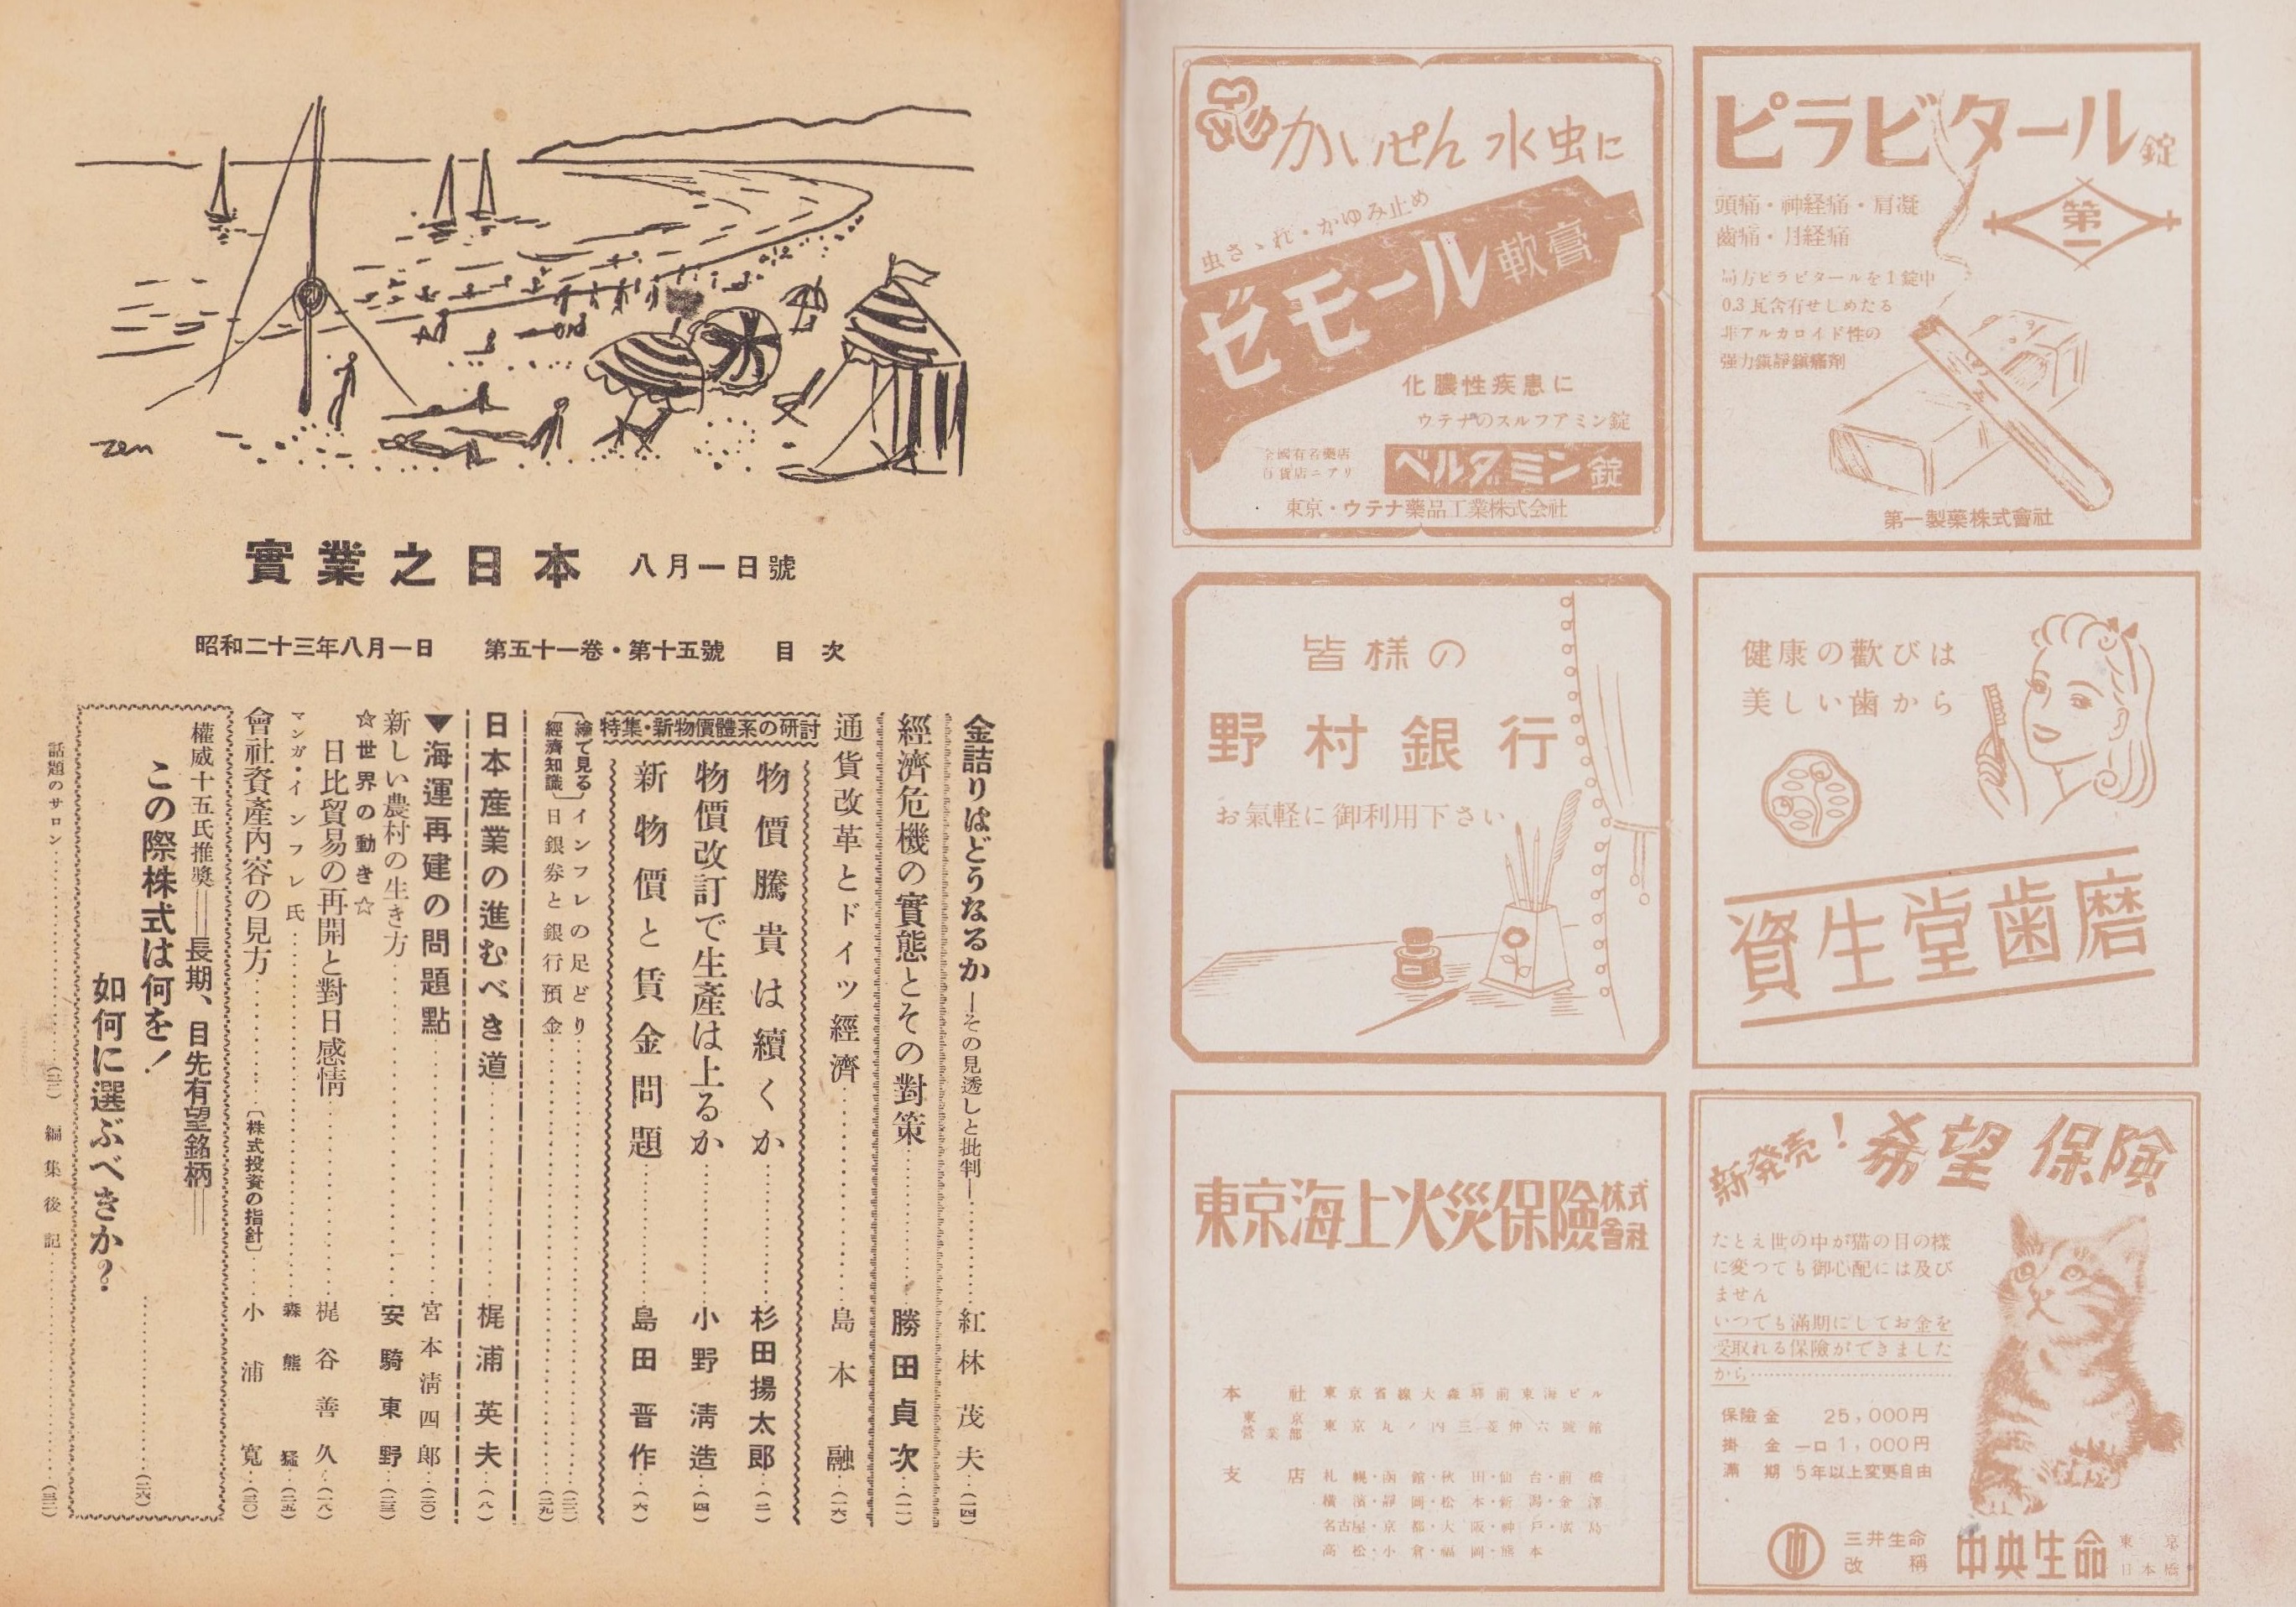 ピラビタール錠
頭痛・神経痛・肩凝
齒痛・月経痛
第一
局方ピラビタールを1錠中
0.3瓦含有せしめたる
非アルカロイド性の
強力鎭靜鎭痛剤
第一製藥株式會社
かいせん 水虫に
虫さゝれ・かゆみ止め
ゼモール軟膏
化膿性疾患に
ウテナのスルフアミン錠
全國有名藥店
百貨店ニアリ
ベルタミン錠
東京・ウテナ藥品工業株式会社
健康の歡びは
美しい歯から
資生堂歯磨
皆様の
野村銀行
お氣軽に御利用下さい
新発売!
希望保険
たとえ世の中が猫の目の様
に変つても御心配には及び
ません
いつでも滿期にしてお金を
受取れる保險ができました
から
保險金 25,000円
掛金 一口1,000円
滿期 5年以上変更自由
三井生命
改稱
中央生命
東京
日本橋
東京海上火災保險株式會社
本社 東京省線大森驛前東海ビル
東京營業部 東京丸ノ内三菱仲六號館
支店 札幌・函館・秋田・仙台・前橋
横濱・靜岡・松本・新潟・金澤
名古屋・京都・大阪・神戸・廣島
高松・小倉・福岡・熊本
zen
實業之日本 八月一日號
昭和二十三年八月一日 第五十一卷・第十五號 目次
金詰りはどうなるか―その見透しと批判―……紅林茂夫…(一四)
經濟危機の實態とその對策……勝田貞次…(一一)
通貨改革とドイツ經濟……島本融…(一六)
特集・新物價體系の研討
物價騰貴は續くか……杉田揚太郎…(二)
物價改訂で生産は上るか……小野淸造…(四)
新物價と賃金問題……島田晋作…(六)
〔繪で見る經濟知識〕
インフレの足どり……
日銀券と銀行預金……(二九)
日本産業の進むべき道……梶浦英夫…(八)
▼海運再建の問題點……宮本淸四郎…(二〇)
新しい農村の生き方……安騎東野…(二三)
☆世界の動き☆
日比貿易の再開と對日感情……梶谷善久…(一八)
マンガ・インフレ氏……森熊猛…(二五)
會社資産內容の見方……〔株式投資の指針〕…小浦寬…(三〇)
權威十五氏推奬＝長期、目先有望銘柄＝
この際株式は何を！
如何に選ぶべきか？
……(二六)
話題のサロン……
編集後記……(三二)